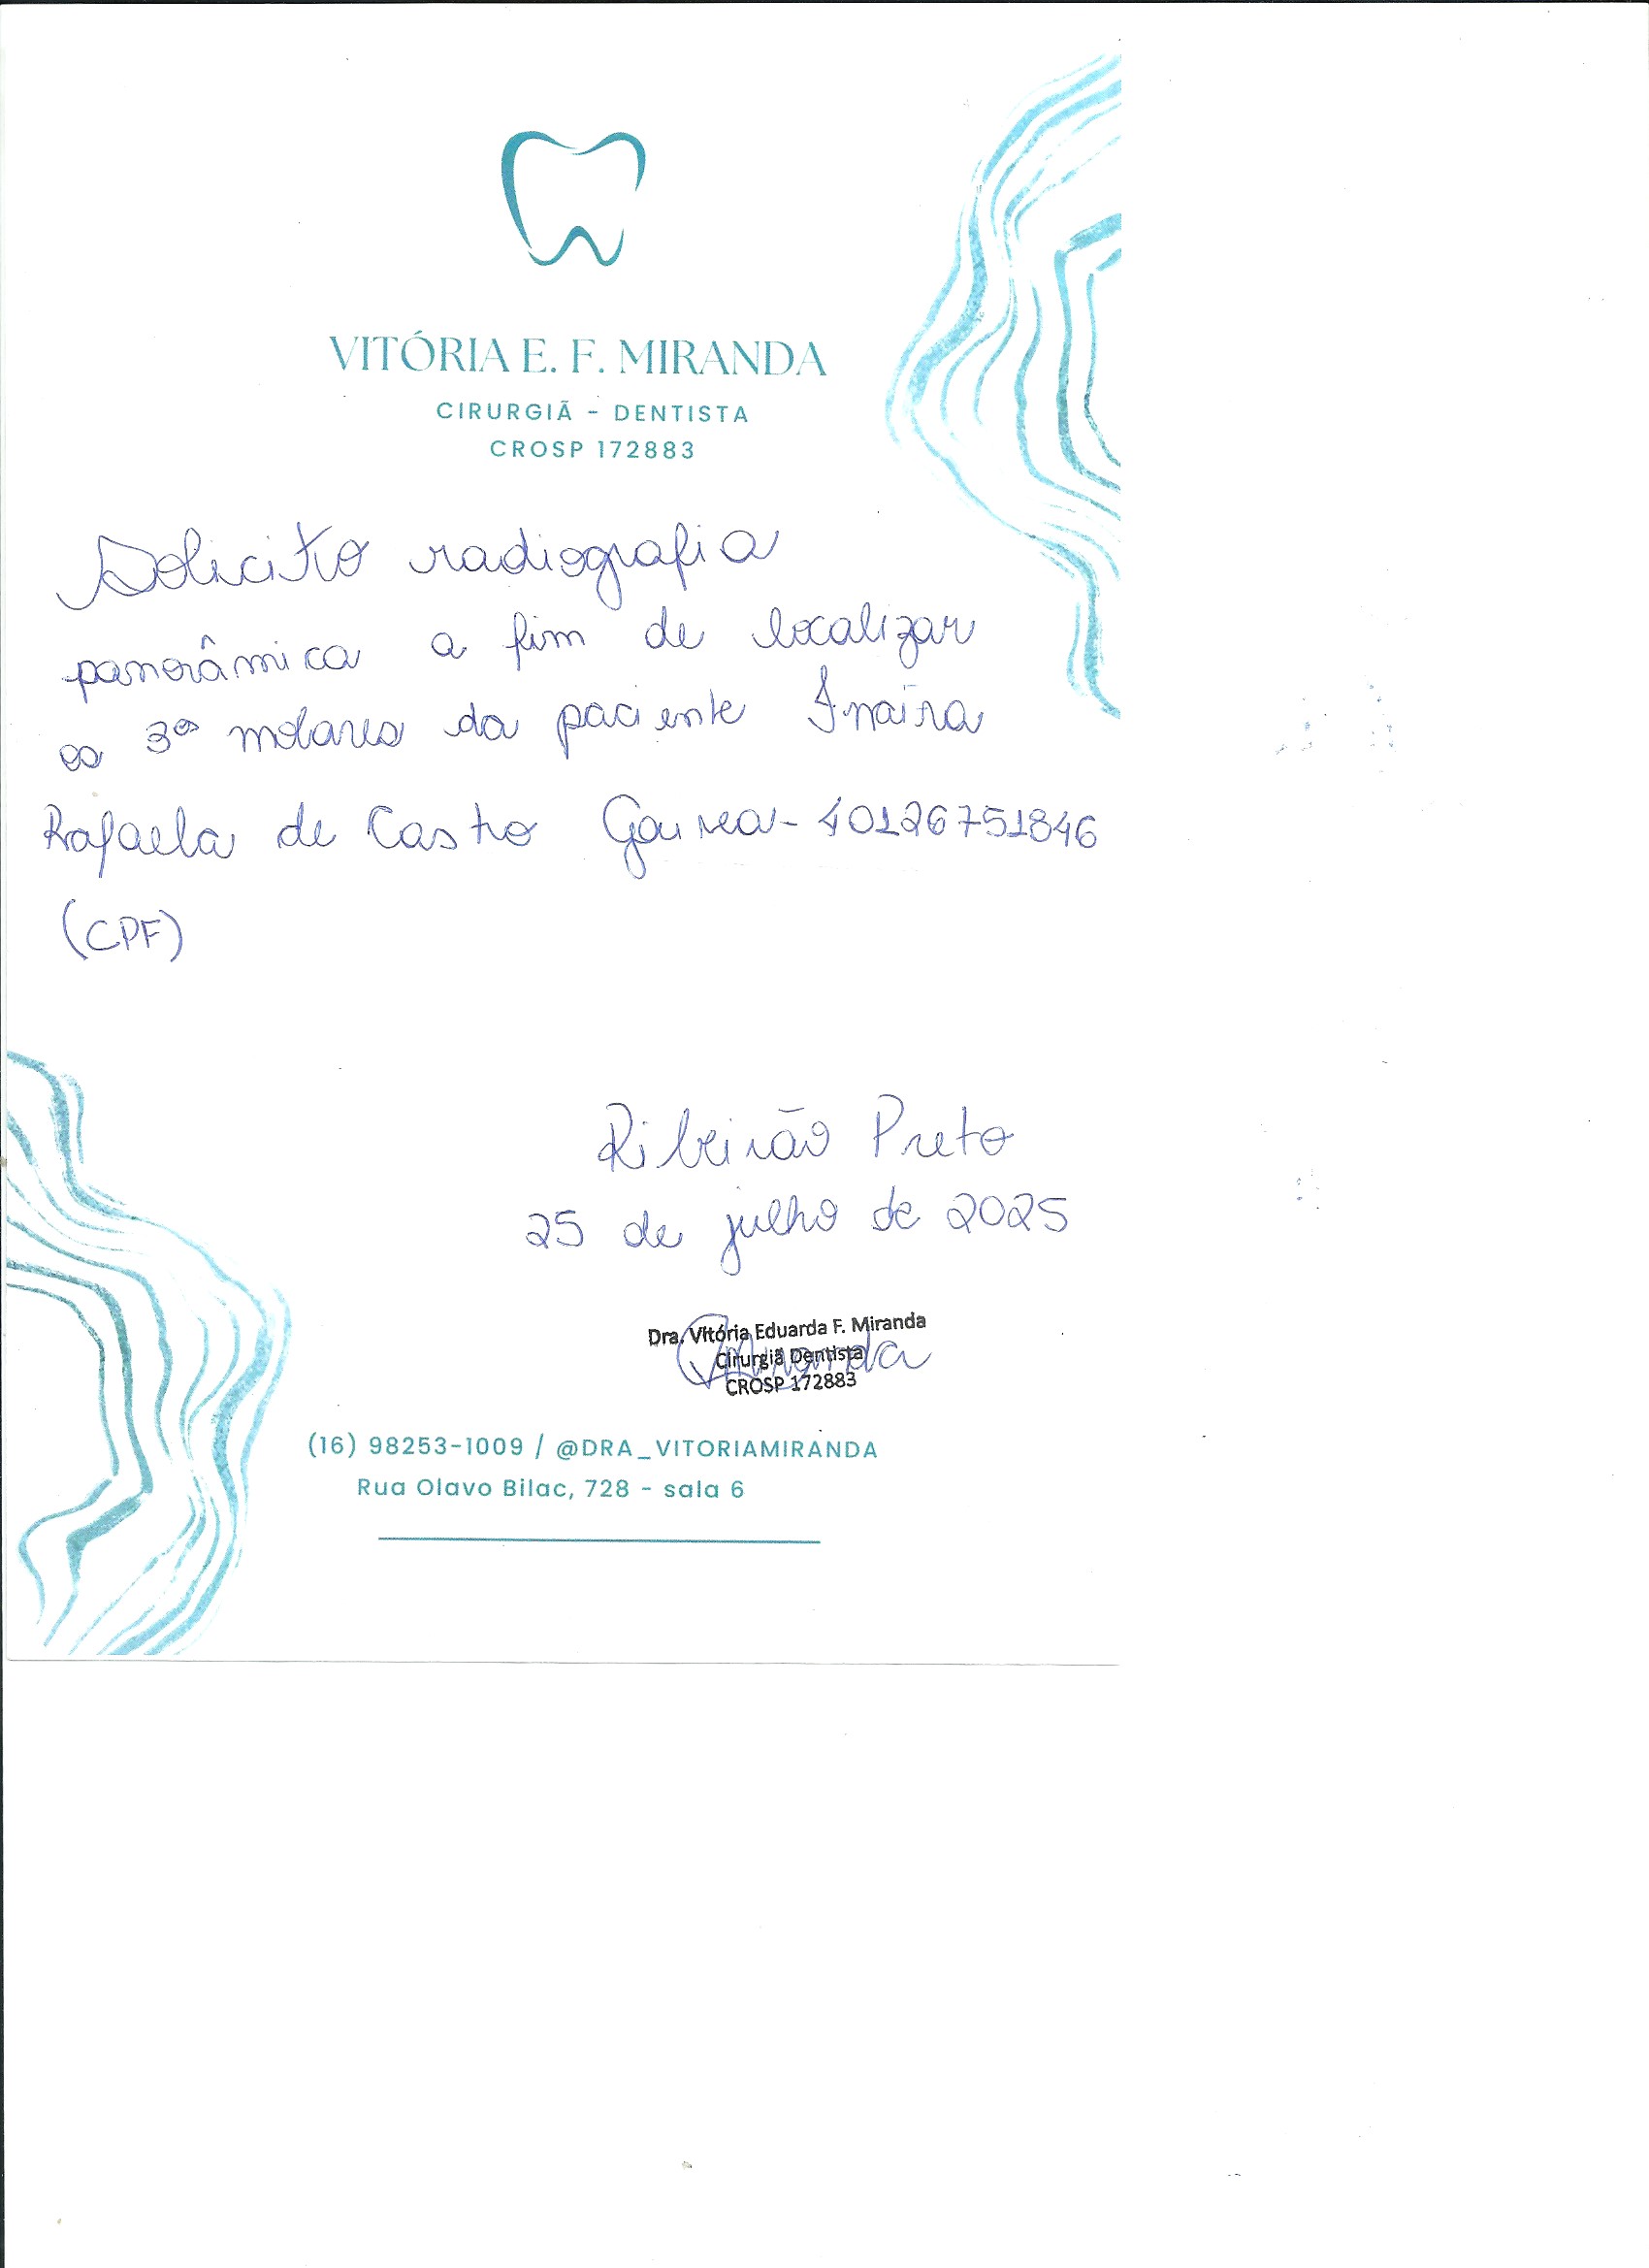 VITÓRIA E. F. MIRANDA
CIRURGIÃ - DENTISTA
CROSP 172883
Solicito radiografia
panorâmica a fim de localizar
os 3ºs molares da paciente Inaira
Rafaela de Castro - 40126751846
(CPF)
Ribeirão Preto
25 de julho de 2025
Dra. Vitória Eduarda F. Miranda
Cirurgiã Dentista
CROSP 172883
Miranda
(16) 98253-1009 / @DRA_VITORIAMIRANDA
Rua Olavo Bilac, 728 - sala 6